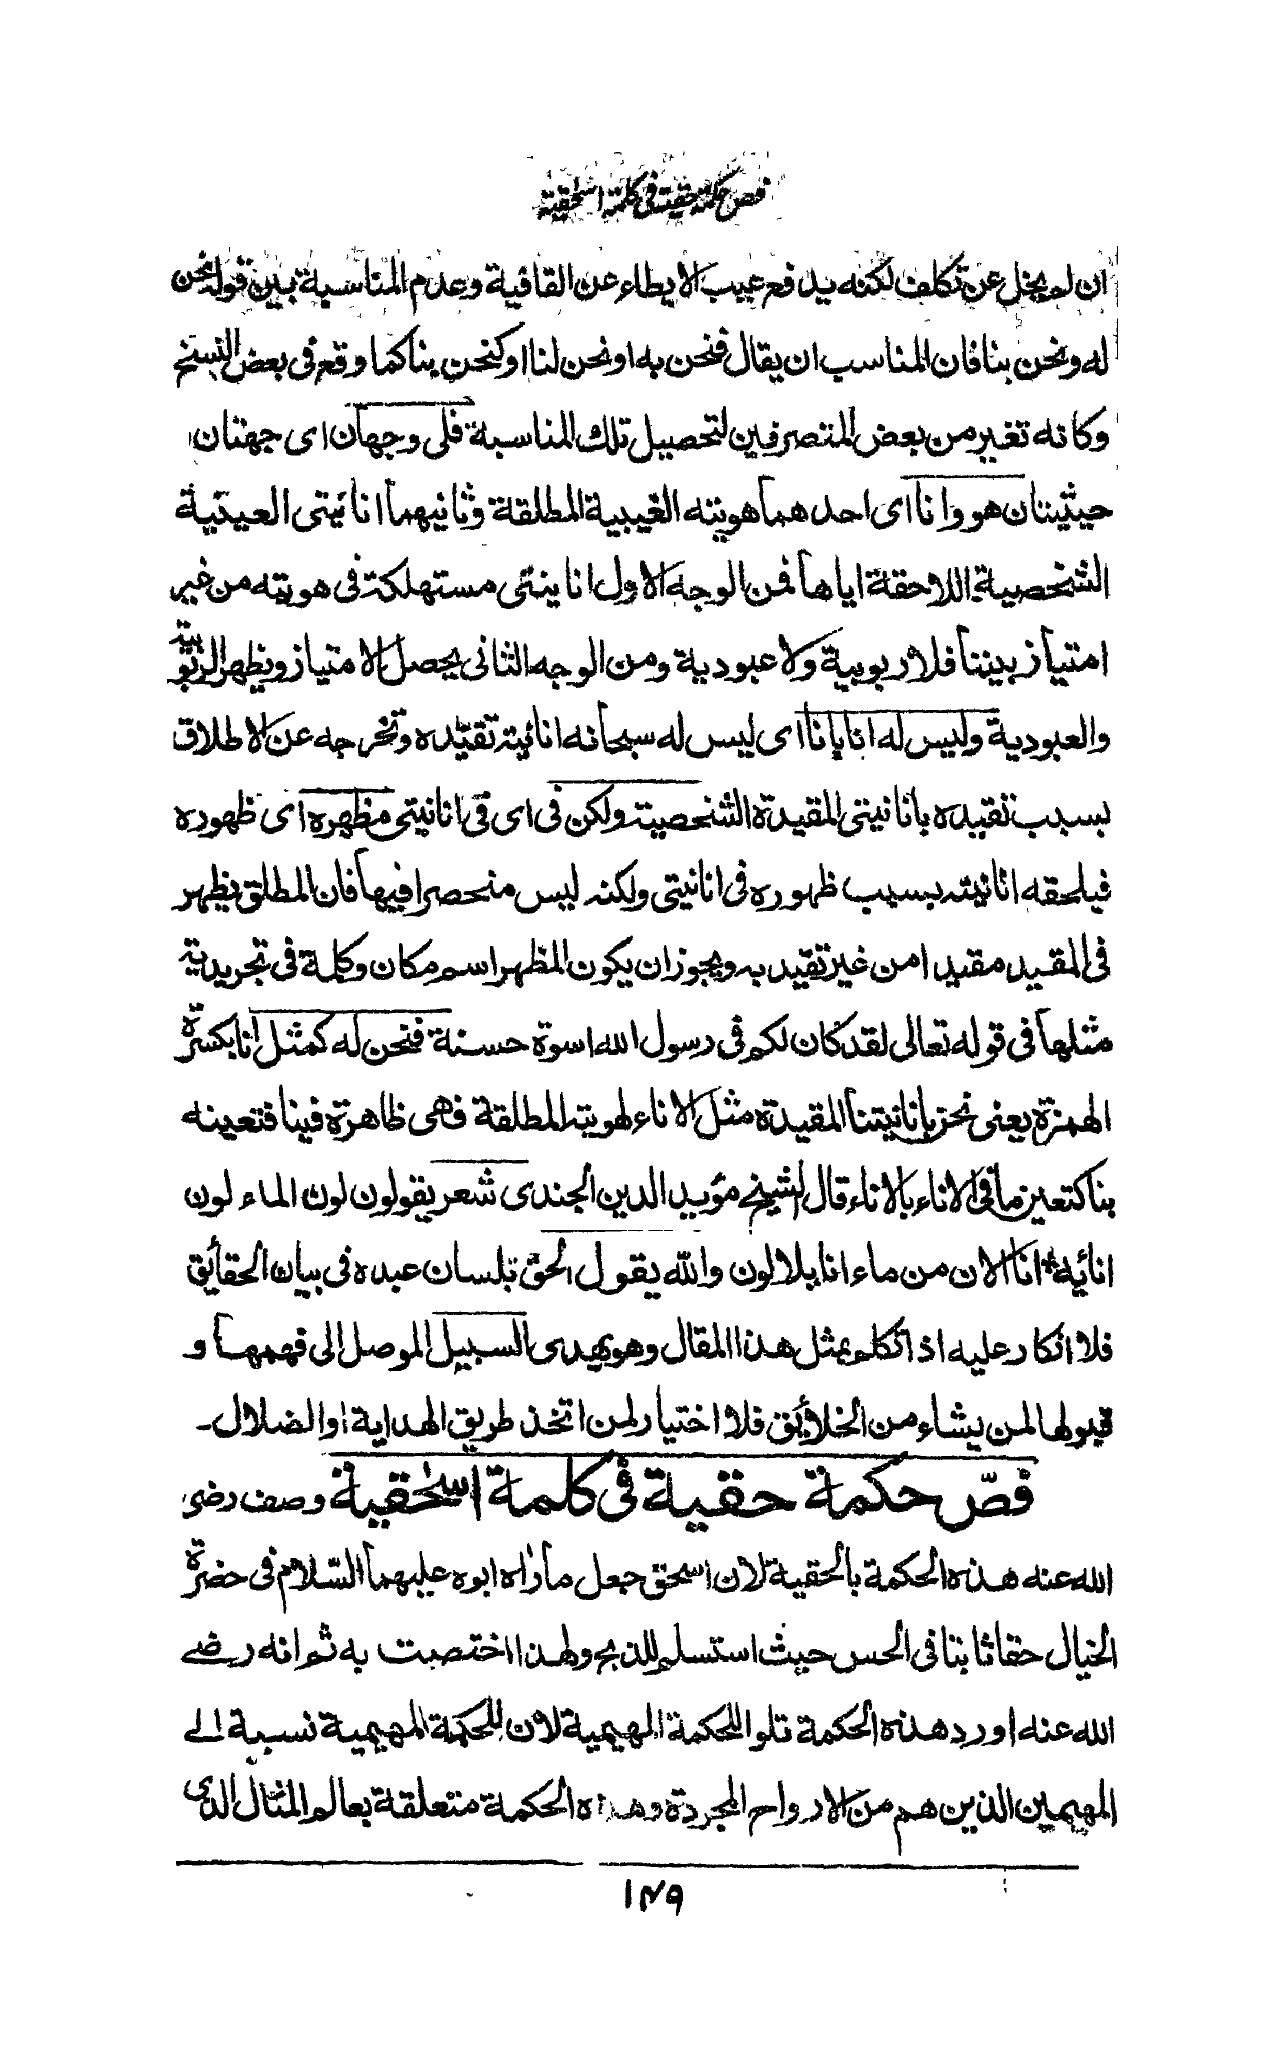 فص حكمة حقية في كلمة اسحقية
ان لم يخل عن تكلف لكنه يدفع عيب الايطاء عن القافية وعدم المناسبة بين قوله نحن
له ونحن بنا فان المناسب ان يقال فنحن به او نحن لنا او كنحن بنا كما وقع فى بعض النسخ
وكانه تغير من بعض المتصرفين لتحصيل تلك المناسبة فلى وجهان اى جهتان
حيثيتان هو وانا اى احدهما هويته الغيبية المطلقة وثانيهما انائيتى العينية
الشخصية اللاحقة اياها فمن الوجه الاول انا ينتى مستهلكة فى هويته من غير
امتياز بيننا فلا ربوبية ولا عبودية ومن الوجه الثانى يحصل الامتياز ويظهر الربوبية
والعبودية وليس له انا بانا اى ليس له سبحانه انائية تقيّده وتخرجه عن الاطلاق
بسبب تقيده بانانيتى المقيدة الشخصية ولكن فى اى فى انانيتى مظهره اى ظهوره
فيلحقه انانيته بسبب ظهوره فى انانيتى ولكنه ليس منحصرا فيها فان المطلق يظهر
فى المقيد مقيدا من غير تقيّد به ويجوز ان يكون المظهر اسم مكان وكلمة فى تجريدية
مثلها فى قوله تعالى لقد كان لكم فى رسول الله اسوة حسنة فنحن له كمثل انا بكسرة
الهمزة يعنى نحن بانانيتنا المقيدة مثل الاناء لهويته المطلقة فهى ظاهرة فينا فتعينه
بنا كتعين ما فى الاناء بالاناء قال الشيخ مؤيد الدين الجندى شعر يقولون لون الماء لون
انائيه * انا الان من ماء انا بلا لون والله يقول الحق بلسان عبده فى بيان الحقائق
فلا انكار عليه اذا تكلم بمثل هذا المقال وهو يهدى السبيل الموصل الى فهمها و
قبولها لمن يشاء من الخلائق فلا اختيار لمن اتخذ طريق الهداية او الضلال-
فصّ حكمة حقية فى كلمة اسحقية وصف رضى
الله عنه هذه الحكمة بالحقية لان اسحق جعل ما راٰه ابوه عليهما السّلام فى حضرة
الخيال حقا ثابتا فى الحس حيث استسلم للذبح ولهذا اختصت به ثم انه رضے
الله عنه اورد هذه الحكمة تلوا للحكمة المهيمية لان للحكمة المهيمية نسبة الے
المهيمين الذين هم من الارواح المجردة وهذه الحكمة متعلقة بعالم المثال الذى
١٣٩